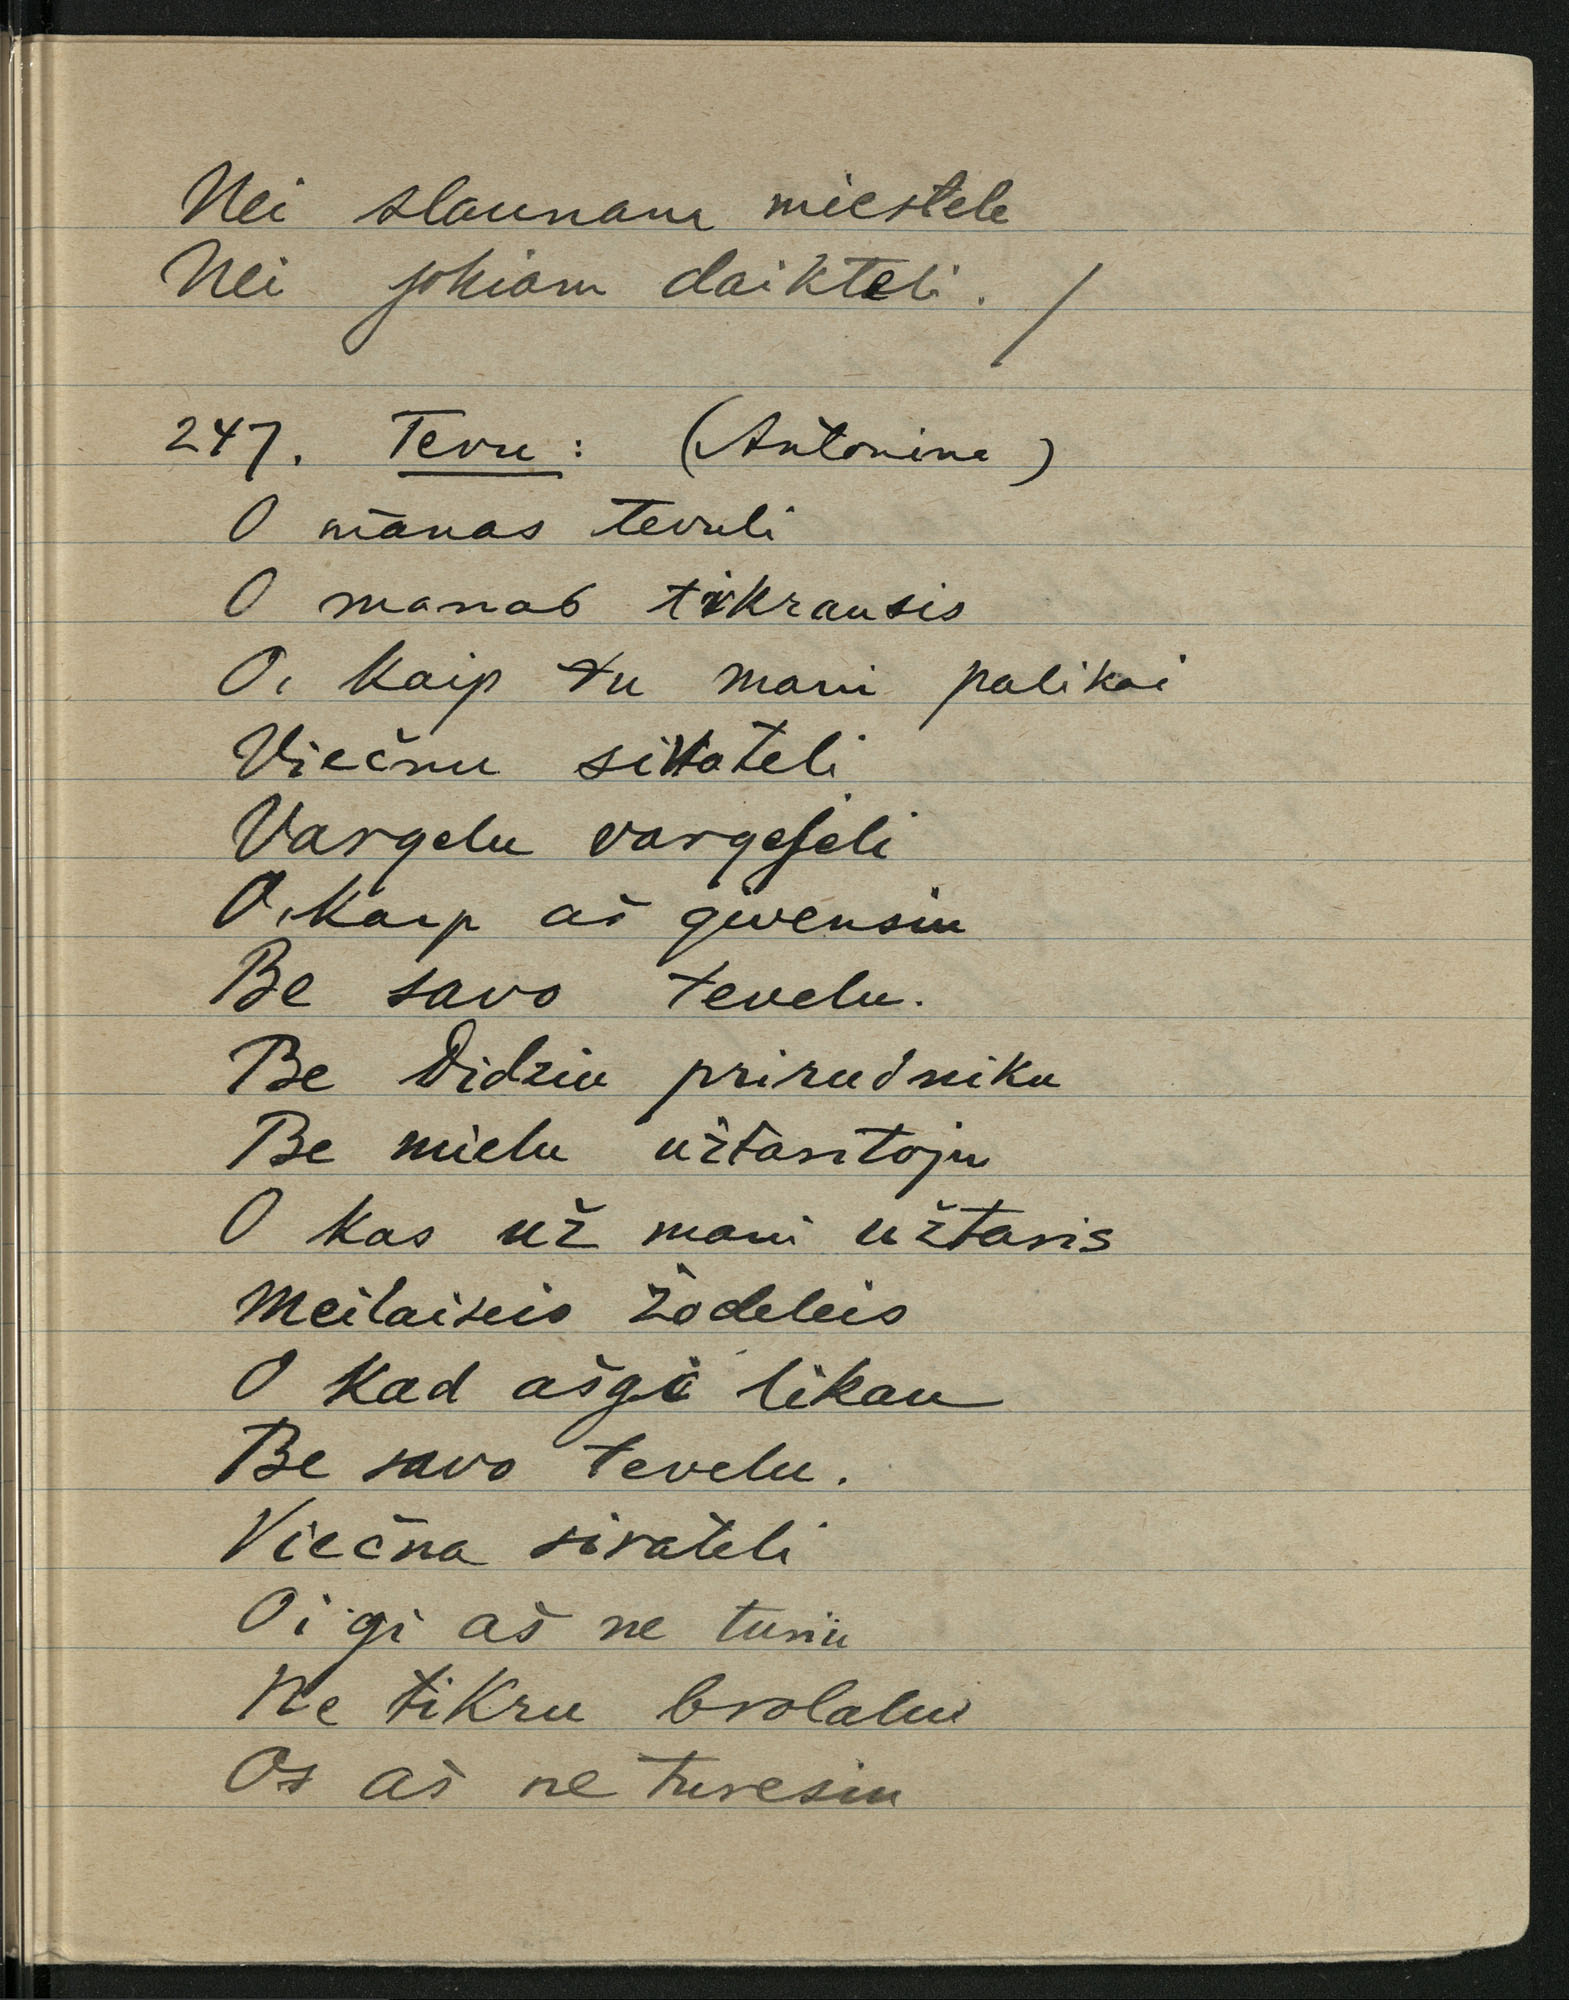 Nei slaunam miestele
Nei jokiam daikteli. /
247. Tevu: (Antonina)
O mānas tevuli
O manas tikrausis
O, kaip tu mani palikai
Viečnu sirateli
Vargelu vargeseli
O, kaip aš givensiu
Be savo tevelu.
Be Didziu prirudniku
Be mielu užtaritoju
O kas už mani užtaris
Meilaiseis žodeleis
O kad ašgi likau
Be savo tevelu.
Viečna sirateli
Oi gi aš ne turiu
Ne tikru brolalu
Os aš ne turesiu